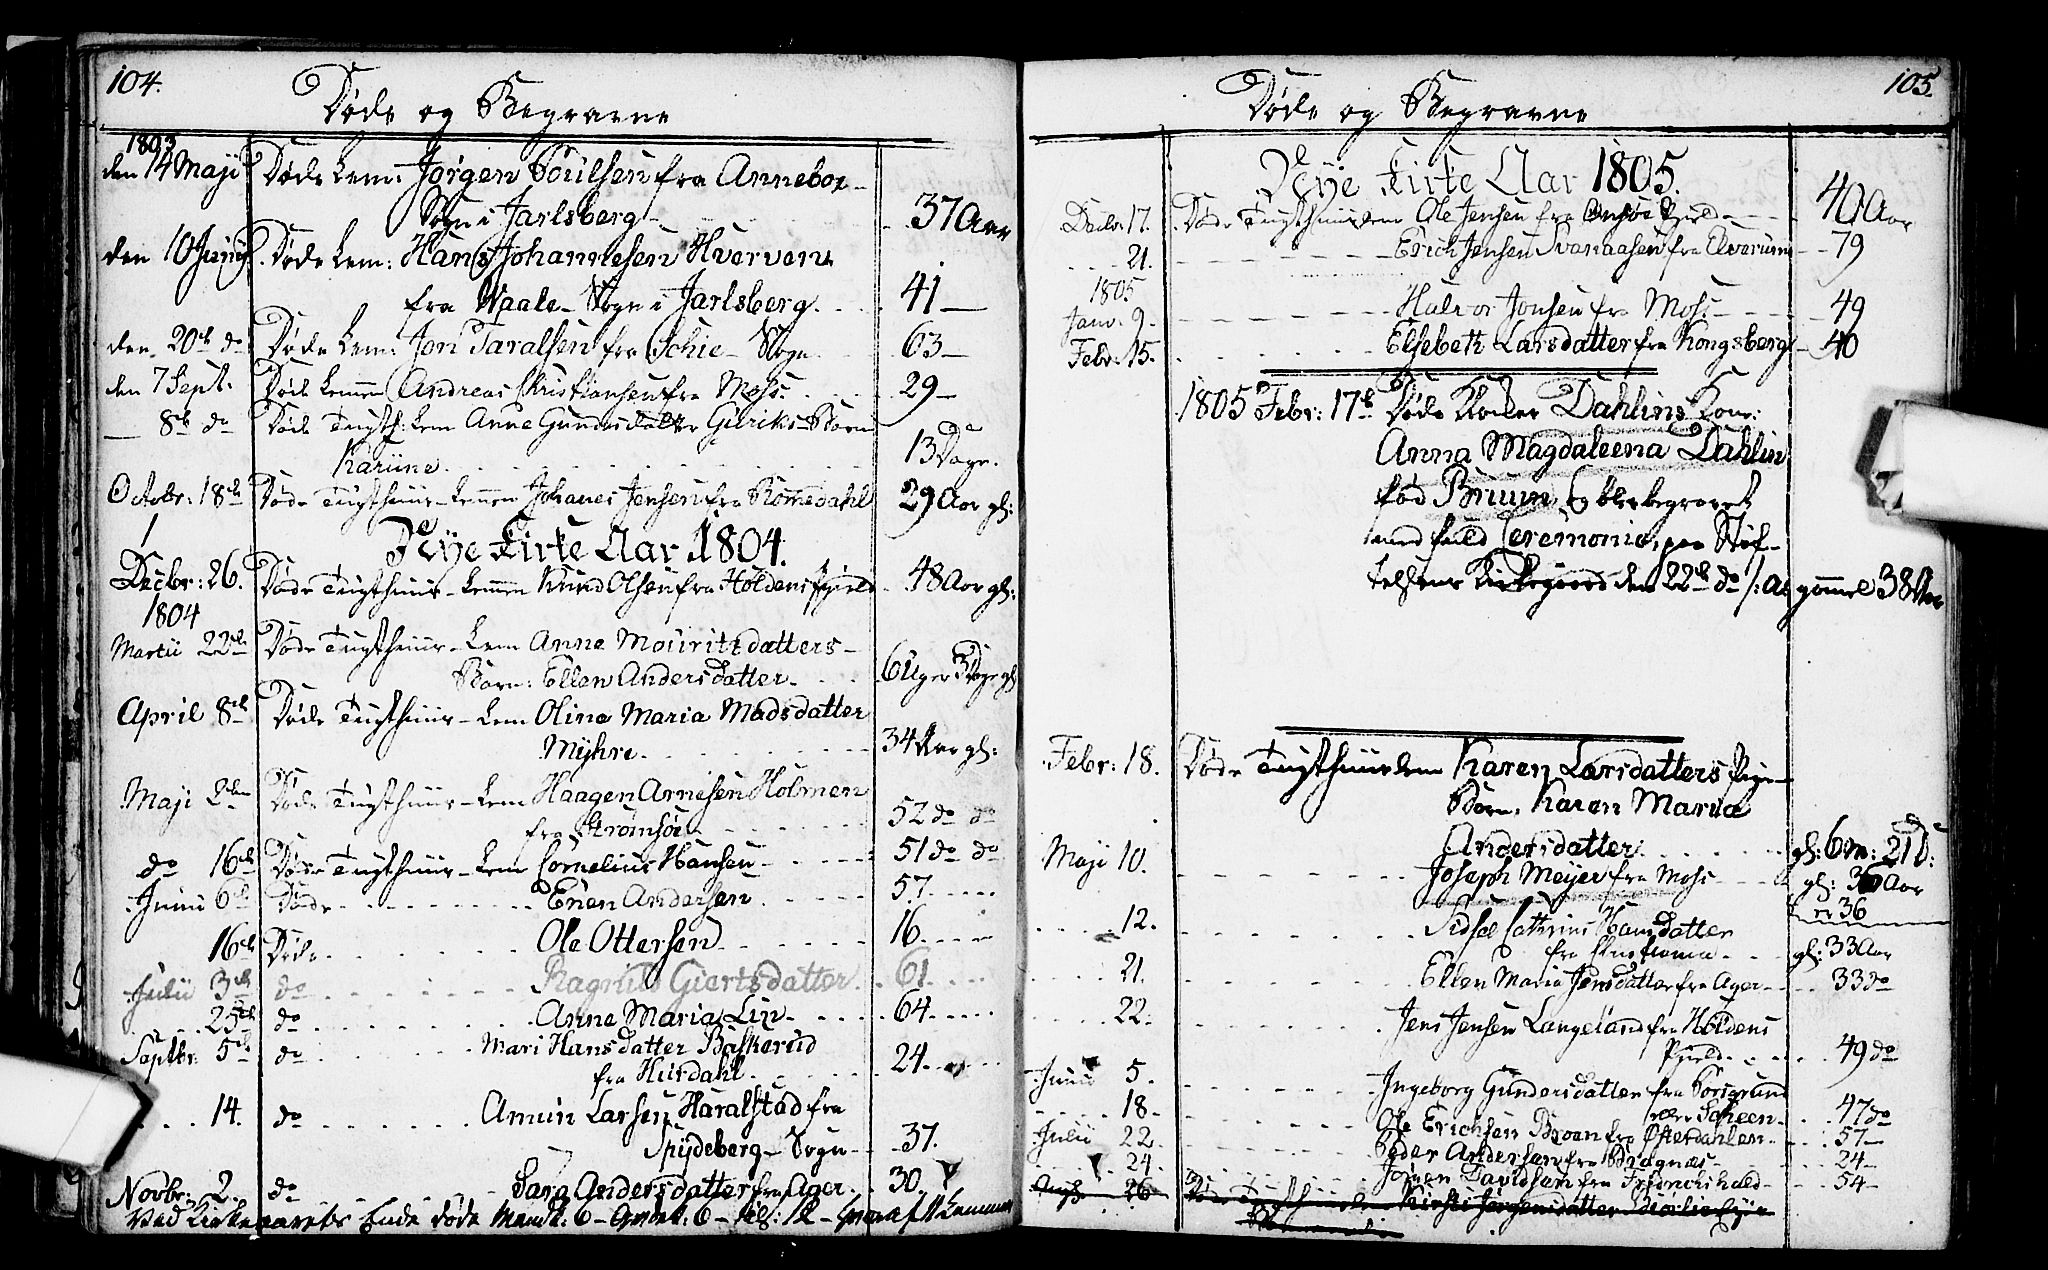 104.
Døde og Begravne
1803
den 14 Maji Døde Lem: Jørgen Poulsen fra Anneboe
Sogn i Jarlsberg 37 Aar
den 10 Junij Døde Lem: Hans Johannesen Hverven
fra Waale Sogn i Jarlsberg 41
den 20de do Døde Lem: Jon Taralsen fra Schie Sogn 63
den 7 Sept. Døde Lemmen Andreas Christiansen fra Moss 29
8de do Døde Tugth: Lem Anne Gundersdatter Guriks Barn
Karüne 13 Dage.
Octobr: 18de Døde Tugthuus-Lemmen Johanes Jensen fra Romedahl 29 Aar gl:
Nÿe Kirke Aar 1804.
Decbr: 26. Døde Tugthuus-Lemmen Knud Olsen fra Høldens Pgield 48 Aar gl:
1804
Martii 22de Døde Tugthuus-Lem Anne Mouritzdatters
Barn: Ellen Andersdatter 6 Uger 3 Dage gl
April 8de Døde Tugthuus-Lem Oline Maria Madsdatter
Mÿhre 34 Aar gl:
Maji 2den Døde Tugthuus-Lem Haagen Arnesen Holmen
fra Strømsøe 52 do do
do 16de Døde Tugthuus-Lem Cornelius Hansen 51 do do
Junii 6te Døde Enen Andersen 57
16de Døde Ole Ottersen 16
Julii 3de do Ragnild Giertsdatter 61
25de do Anne Maria Lin 64
Septbr: 5te do Mari Hansdatter Baskerud
fra Hurdahl 24
14. do Amun Larsen Haralstad fra
Spÿdeberg Sogn 37.
Novbr: 2. do Sara Andersdatter fra Ager 30.
Ved Kirkeaarets Ende døde Mandk: 6 - Qvindk: 6 - til: 12
105.
Døde og Begravne
Nÿe Kirke Aar 1805.
Decbr. 17. Døde Tugthuuslem Ole Jensen fra Onsøe Pgield 40 Aar
21. Erich Jensen Svenaasen fra Elverum 79
1805
Janv. 9. Halvor Jonsen fra Moss 49
Febr: 15. Elsebeth Larsdatter fra Kongsberg 40
1805 Febr: 17de Døde Klocker Dahlins Kone:
Anna Magdaleena Dahlin
fød Bruun, og blev begravet
med fuld Ceremonie, paa Stif-
telsens Kirkegaard den 22de do /: alt gammel 38 Aar
Febr: 18. Døde Tugthuuslem Karen Larsdatters Pige
Barn, Karen Maria
Andersdatter gl: 6 M: 21 D:
Maji 10. Joseph Meÿer fra Moss gl: 30 Aar
er 36
12. Sidsel Cathrine Hansdatter
fra Christiania gl: 33 Aar
21. Ellen Maria Jensdatter fra Ager 33 do
22. Jens Jensen Langeland fra Høldens
Pgield 49 do
Junii 5. Ingeborg Gundersdatter fra Porsgrund
eller Scheen 47 do
18. Ole Erichsen Broen fra Østerdahlen 57
Julii 22. Peder Andersen fra Bragnæs 24
24. Jøren Davidsen fra Fredrickshald 54
Augs. 26 Døde Tugthuuslem Kirsti Jørgensdatter